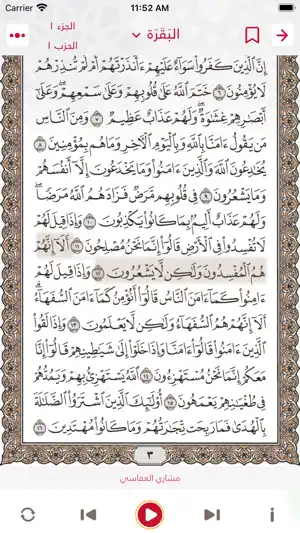 Carrier 11:52 AM
الجزء ١
البَقَرَة
الحزب ١
إِنَّ ٱلَّذِينَ كَفَرُوا۟ سَوَآءٌ عَلَيْهِمْ ءَأَنذَرْتَهُمْ أَمْ لَمْ تُنذِرْهُمْ
لَا يُؤْمِنُونَ ٦ خَتَمَ ٱللَّهُ عَلَىٰ قُلُوبِهِمْ وَعَلَىٰ سَمْعِهِمْ ۖ وَعَلَىٰٓ
أَبْصَٰرِهِمْ غِشَٰوَةٌ ۖ وَلَهُمْ عَذَابٌ عَظِيمٌ ٧ وَمِنَ ٱلنَّاسِ
مَن يَقُولُ ءَامَنَّا بِٱللَّهِ وَبِٱلْيَوْمِ ٱلْءَاخِرِ وَمَا هُم بِمُؤْمِنِينَ ٨
يُخَٰدِعُونَ ٱللَّهَ وَٱلَّذِينَ ءَامَنُوا۟ وَمَا يَخْدَعُونَ إِلَّآ أَنفُسَهُمْ
وَمَا يَشْعُرُونَ ٩ فِى قُلُوبِهِم مَّرَضٌ فَزَادَهُمُ ٱللَّهُ مَرَضًا ۖ
وَلَهُمْ عَذَابٌ أَلِيمٌۢ بِمَا كَانُوا۟ يَكْذِبُونَ ١٠ وَإِذَا قِيلَ لَهُمْ
لَا تُفْسِدُوا۟ فِى ٱلْأَرْضِ قَالُوٓا۟ إِنَّمَا نَحْنُ مُصْلِحُونَ ١١ أَلَآ إِنَّهُمْ
هُمُ ٱلْمُفْسِدُونَ وَلَٰكِن لَّا يَشْعُرُونَ ١٢ وَإِذَا قِيلَ لَهُمْ
ءَامِنُوا۟ كَمَآ ءَامَنَ ٱلنَّاسُ قَالُوٓا۟ أَنُؤْمِنُ كَمَآ ءَامَنَ ٱلسُّفَهَآءُ ۗ
أَلَآ إِنَّهُمْ هُمُ ٱلسُّفَهَآءُ وَلَٰكِن لَّا يَعْلَمُونَ ١٣ وَإِذَا لَقُوا۟
ٱلَّذِينَ ءَامَنُوا۟ قَالُوٓا۟ ءَامَنَّا وَإِذَا خَلَوْا۟ إِلَىٰ شَيَٰطِينِهِمْ قَالُوٓا۟ إِنَّا
مَعَكُمْ إِنَّمَا نَحْنُ مُسْتَهْزِءُونَ ١٤ ٱللَّهُ يَسْتَهْزِئُ بِهِمْ وَيَمُدُّهُمْ
فِى طُغْيَٰنِهِمْ يَعْمَهُونَ ١٥ أُو۟لَٰٓئِكَ ٱلَّذِينَ ٱشْتَرَوُا۟ ٱلضَّلَٰلَةَ
بِٱلْهُدَىٰ فَمَا رَبِحَت تِّجَٰرَتُهُمْ وَمَا كَانُوا۟ مُهْتَدِينَ ١٦
٣
مشاري العفاسي